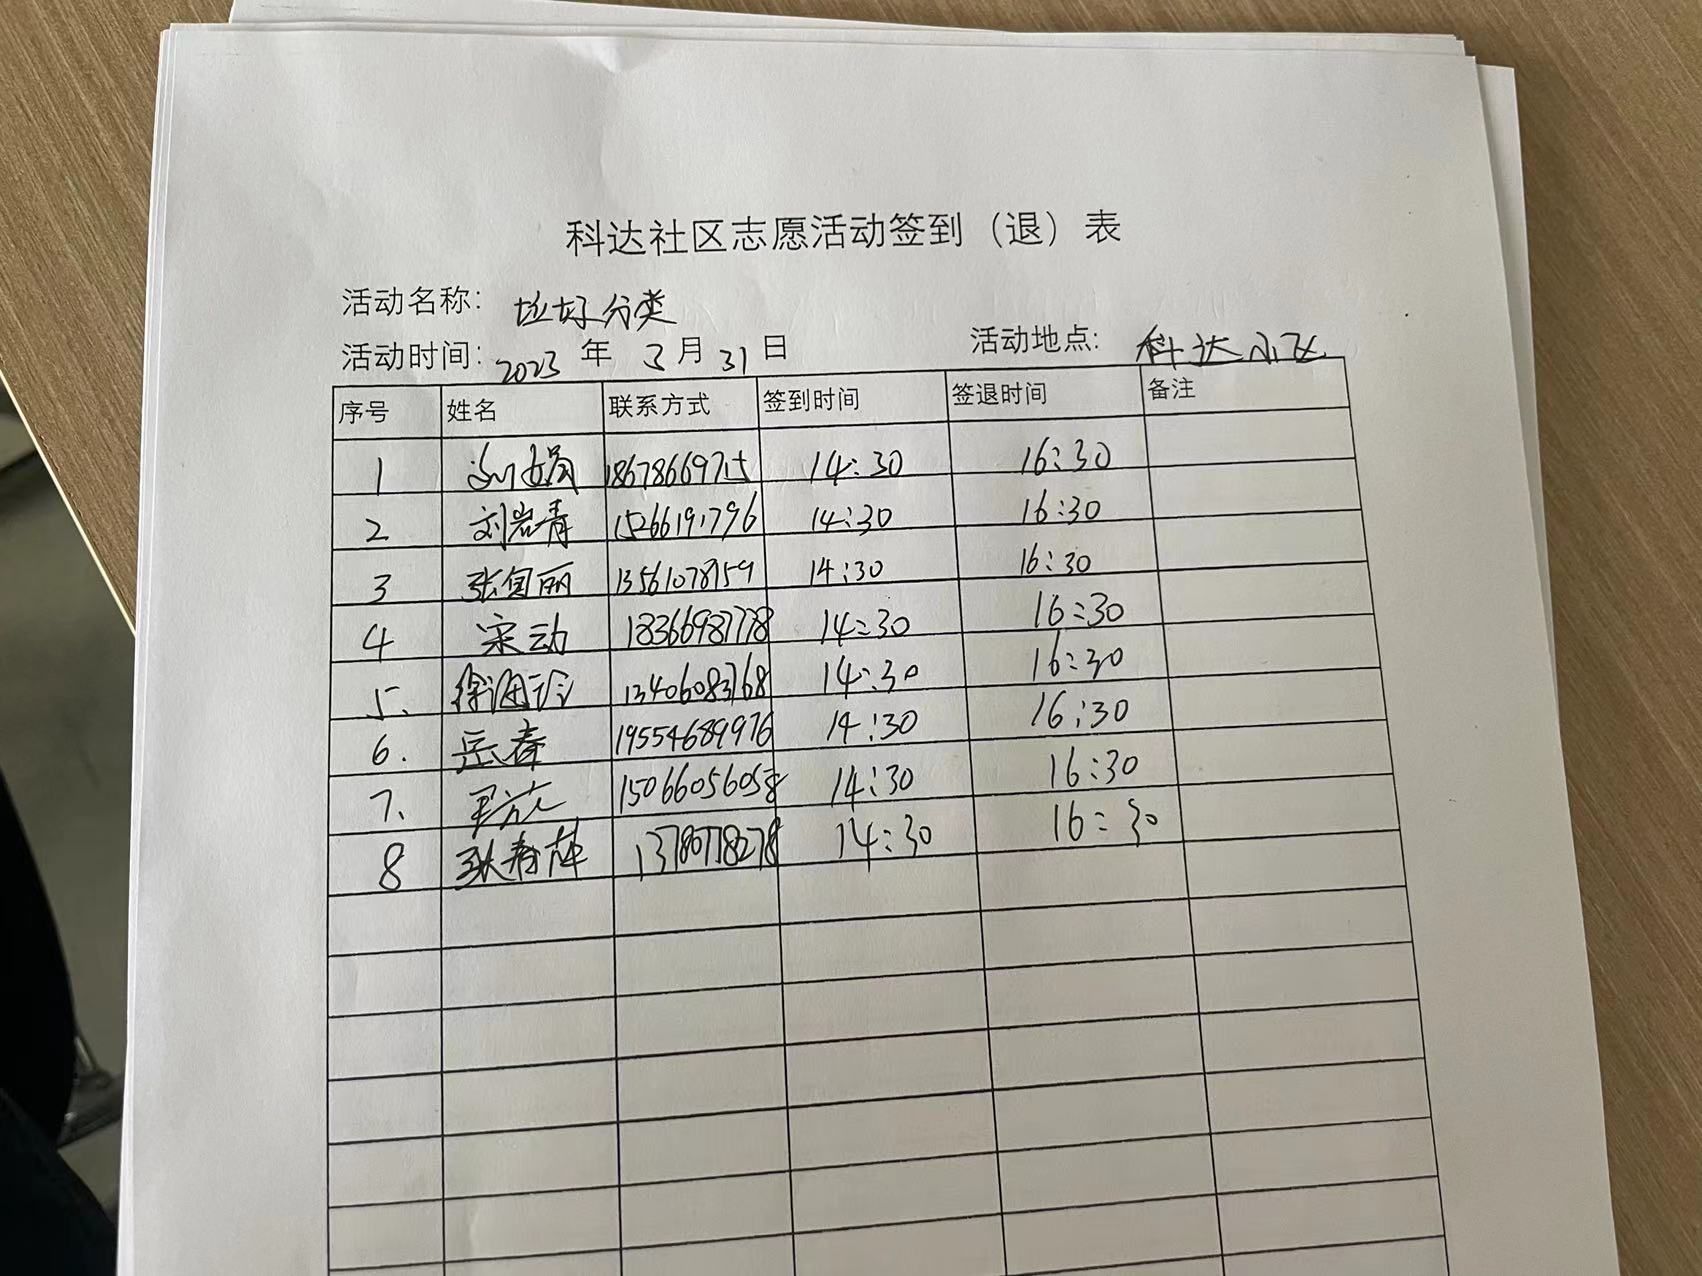 科达社区志愿活动签到（退）表
活动名称： 垃圾分类
活动时间：2023 年 3 月 31 日 活动地点： 科达小区
序号 姓名 联系方式 签到时间 签退时间 备注
1 刘娟 14:30 16:30
2 刘岩青 15266191796 14:30 16:30
3 丽 13561078159 14:30 16:30
4 宋动 18366987778 14:30 16:30
5. 徐 13406083768 14:30 16:30
6. 岳春 19554689976 14:30 16:30
7. 15066056058 14:30 16:30
8 耿春萍 13780778278 14:30 16:30